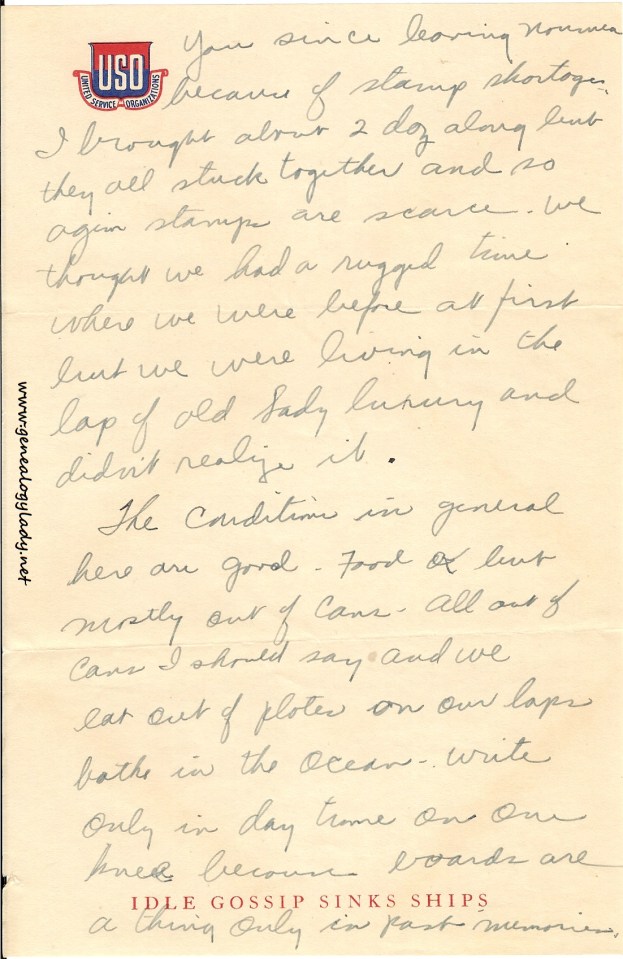 USO
UNITED SERVICE ORGANIZATIONS
You since leaving Noumea
because of stamp shortage.
I brought about 2 doz along but
they all stuck together and so
agin stamps are scarce. We
thought we had a rugged time
where we were before at first
but we were living in the
lap of old Lady luxury and
didn't realize it.
The condition in general
here are good - Food ok but
mostly out of cans - All out of
cans I should say and we
eat out of plates on our laps
bathe in the ocean - write
only in day time on our
knee because boards are
IDLE GOSSIP SINKS SHIPS
a thing only in past memories.
www.genealogylady.net